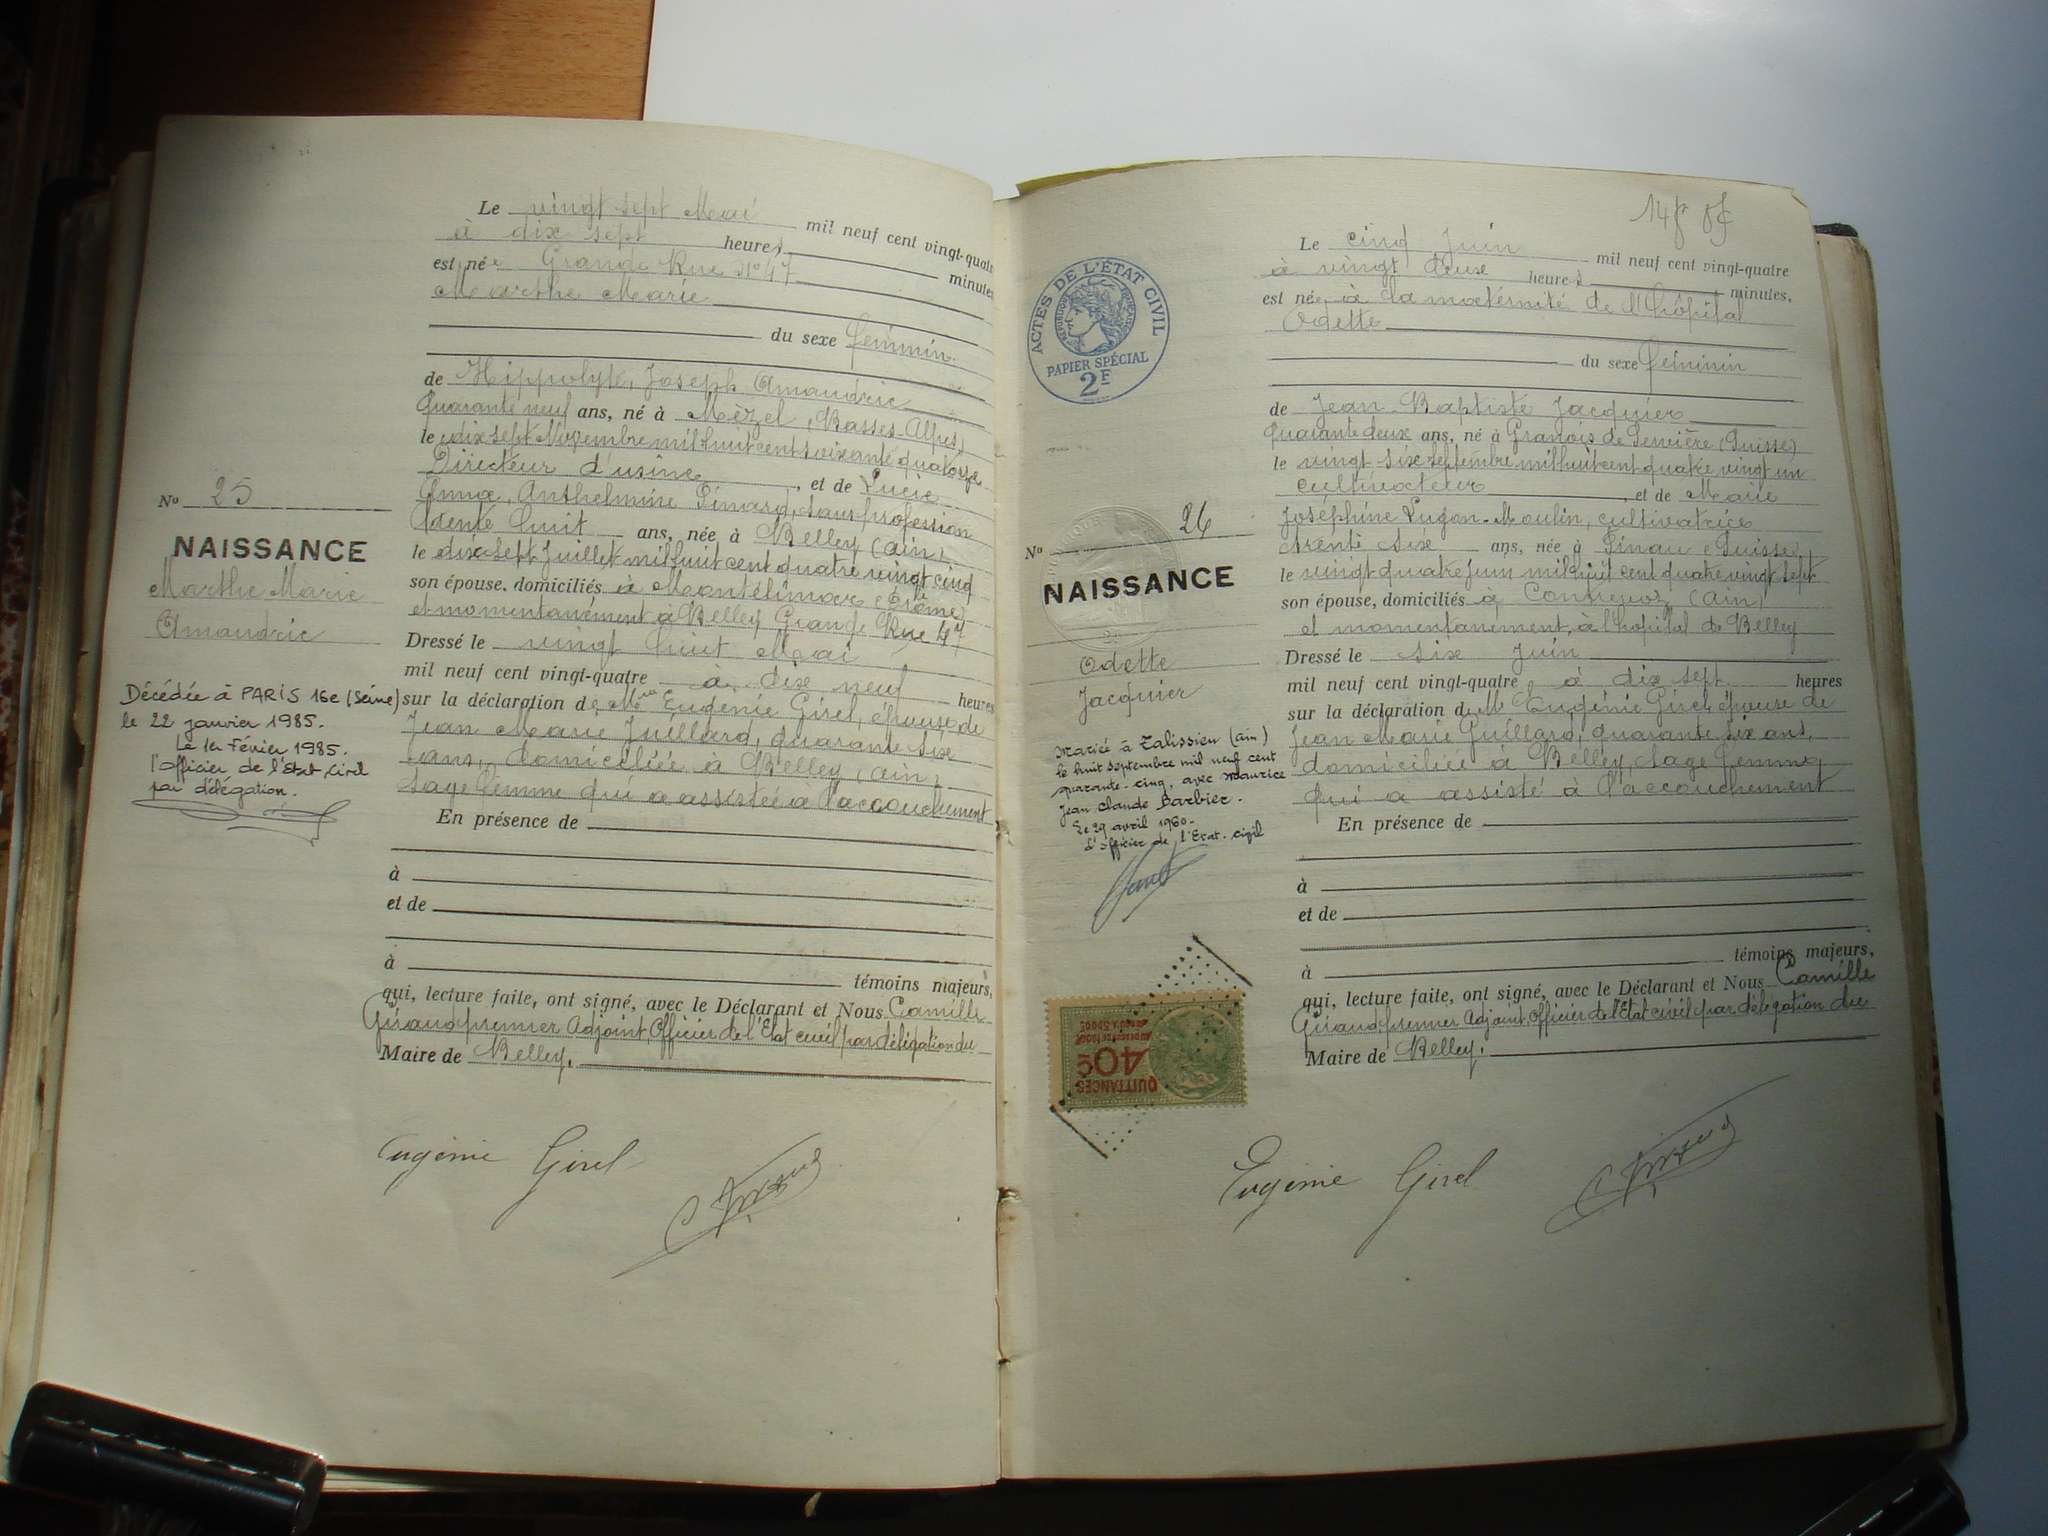 Le vingt sept Mai mil neuf cent vingt-quatre
à dix sept heures minutes
est née Grande Rue N° 47
Marthe Marie
du sexe féminin.
de Hippolyte, Joseph Amaudric
Quarante neuf ans, né à Mézel, (Basses Alpes)
le dix sept Novembre mil huit cent soixante quatorze
Directeur d'usine, et de Lucie
Anna, Anthelmine Pinard, sans profession
trente huit ans, née à Belley (Ain),
le dix-sept Juillet mil huit cent quatre vingt cinq
son épouse, domiciliés à Montélimar (Drôme)
et momentanément à Belley Grande Rue 47
Dressé le vingt huit Mai
mil neuf cent vingt-quatre à dix neuf heures
sur la déclaration de Mme Eugénie Girel, épouse de
Jean Marie Juillard, quarante six
ans, domiciliée à Belley (Ain),
sage femme qui a assistée à l'accouchement
En présence de
à
et de
à témoins majeurs,
qui, lecture faite, ont signé, avec le Déclarant et Nous Camille
Giraud premier Adjoint, Officier de l'Etat civil par délégation du
Maire de Belley.
Eugénie Girel
No 25
NAISSANCE
Marthe Marie
Amaudric
Décédée à PARIS 16e (Seine)
le 22 janvier 1985.
Le 1er Février 1985.
l'officier de l'Etat civil
par délégation.
Le cinq Juin mil neuf cent vingt-quatre
à vingt deux heures minutes,
est née à la maternité de l'hôpital
Odette
du sexe féminin
de Jean-Baptiste Jacquier
quarante deux ans, né à (Suisse)
le vingt six septembre mil huit cent quatre vingt un
cultivateur, et de Marie
Joséphine Lugon-Moulin, cultivatrice
trente six ans, née à (Suisse)
le vingt quatre Juin mil huit cent quatre vingt sept
son épouse, domiciliés à Contrevoz (Ain)
et momentanément, à l'hôpital de Belley
Dressé le six Juin
mil neuf cent vingt-quatre, à dix sept heures
sur la déclaration de Me Eugénie Girel épouse de
Jean Marie Juillard, quarante six ans,
domiciliée à Belley, sage femme
qui a assisté à l'accouchement
En présence de
à
et de
à témoins majeurs,
qui, lecture faite, ont signé, avec le Déclarant et Nous Camille
Giraud premier Adjoint, Officier de l'Etat civil par délégation du
Maire de Belley.
Eugénie Girel
ACTES DE L'ÉTAT CIVIL
RÉPUBLIQUE FRANÇAISE
PAPIER SPÉCIAL
2F
No 26
NAISSANCE
Odette
Jacquier
Mariée à Talissieu (Ain)
le huit septembre mil neuf cent
quarante-cinq, avec Maurice
Jean Claude Barbier.
Le 29 avril 1960.
L'officier de l'Etat-civil
QUITTANCES
40c